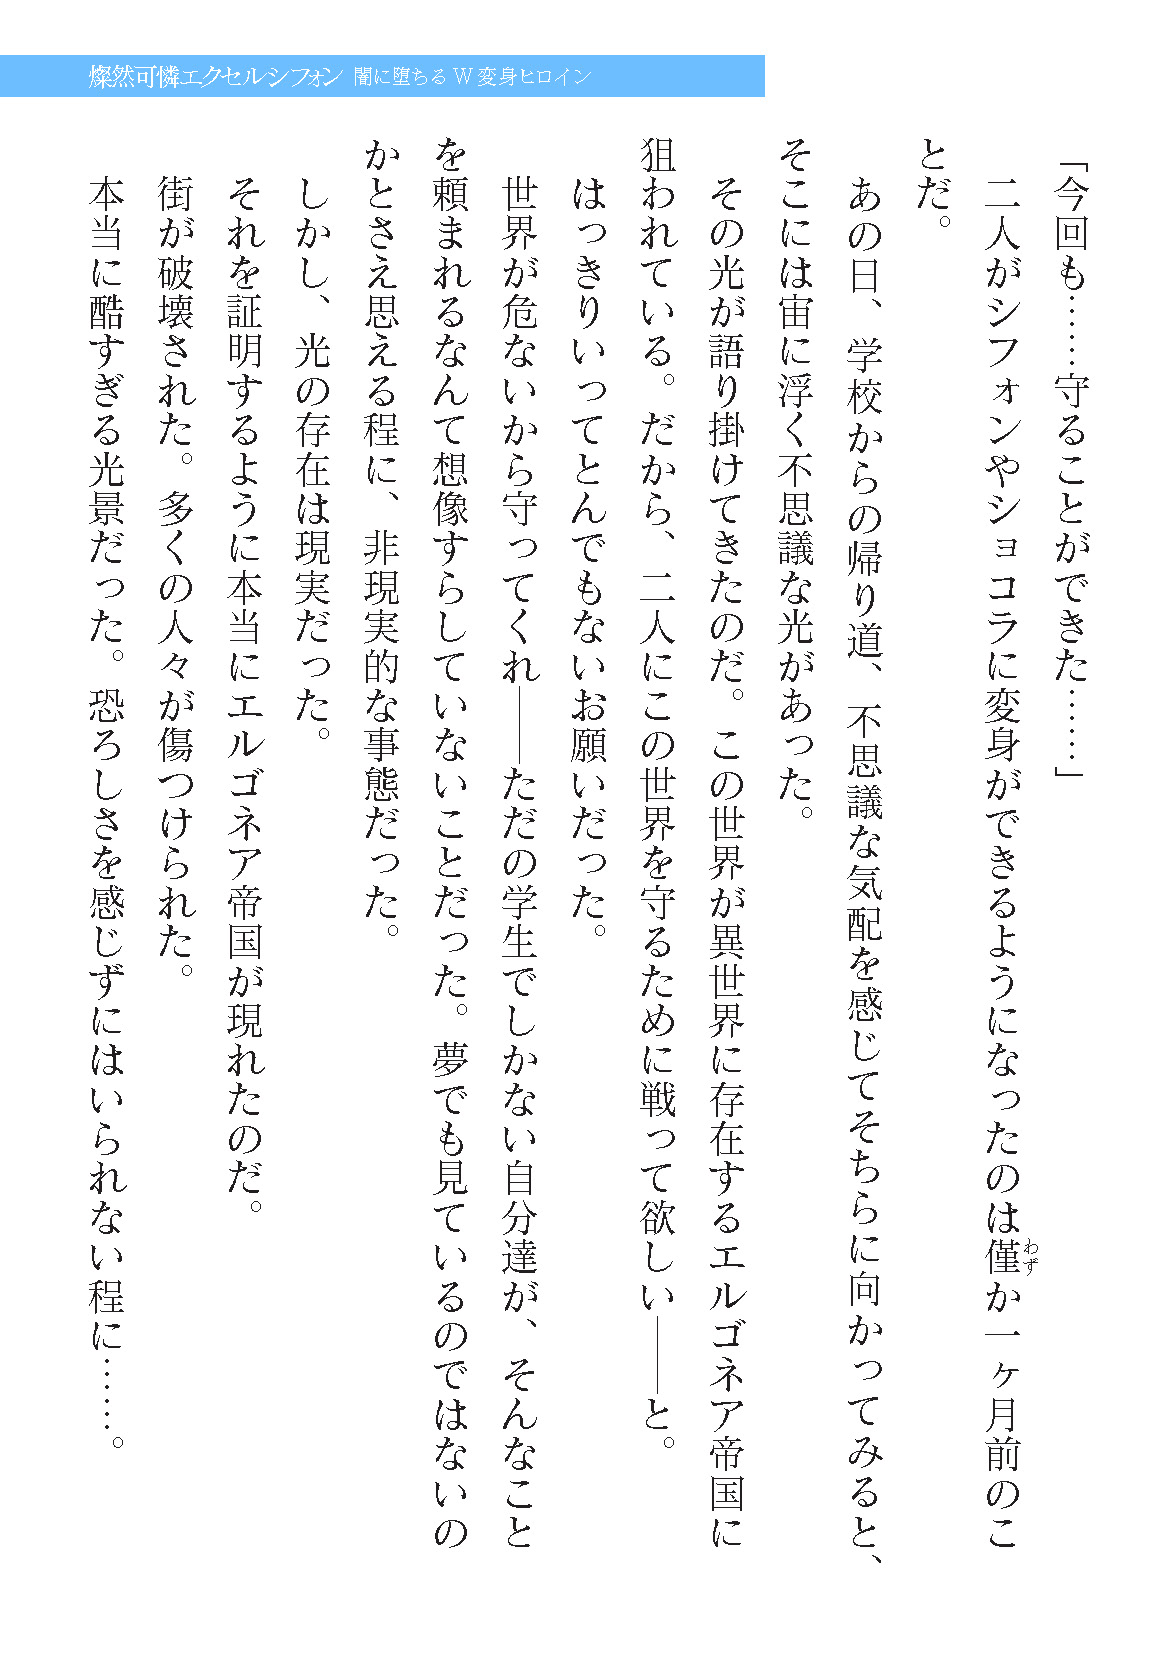 燦然可憐エクセルシフォン 闇に堕ちるW変身ヒロイン
「今回も……守ることができた……」
二人がシフォンやショコラに変身ができるようになったのは僅か一ヶ月前のこ
わず
とだ。
あの日、学校からの帰り道、不思議な気配を感じてそちらに向かってみると、
そこには宙に浮く不思議な光があった。
その光が語り掛けてきたのだ。この世界が異世界に存在するエルゴネア帝国に
狙われている。だから、二人にこの世界を守るために戦って欲しい――と。
はっきりいってとんでもないお願いだった。
世界が危ないから守ってくれ――ただの学生でしかない自分達が、そんなこと
を頼まれるなんて想像すらしていないことだった。夢でも見ているのではないの
かとさえ思える程に、非現実的な事態だった。
しかし、光の存在は現実だった。
それを証明するように本当にエルゴネア帝国が現れたのだ。
街が破壊された。多くの人々が傷つけられた。
本当に酷すぎる光景だった。恐ろしさを感じずにはいられない程に……。